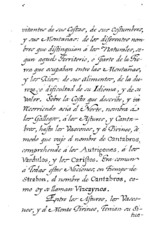 vitantes de sus Costas, de sus Costumbres,
y sus Montañas: à los diferentes nom-
bres que distinguian à los Naturales, se-
gun aquel Territorio, ó Parte de la Tier-
ra que ocupaban entre las Montañas,
y los Rios: de sus alimentos, de la du-
y dificultad de su Idioma, y de su
valor. Sobre la Costa que describe, y
acia el Norte, nombra à
los Gallegos, à los Astures, y Canta-
bros, hasta los Vascones, y el Pirineo, de
modo que vajo el nombre de Cantabros,
comprehende à los Autrigones, à los
Vardulos, y los Caristios. Era comun
à todas estas Naciones, en tiempo de
Strabon, el nombre de Cantabros, co-
mo oy se llaman Vizcaynos.
Entre los Astures, los Vasco-
nes, y el Monte Pirineo, tenian su Situa-